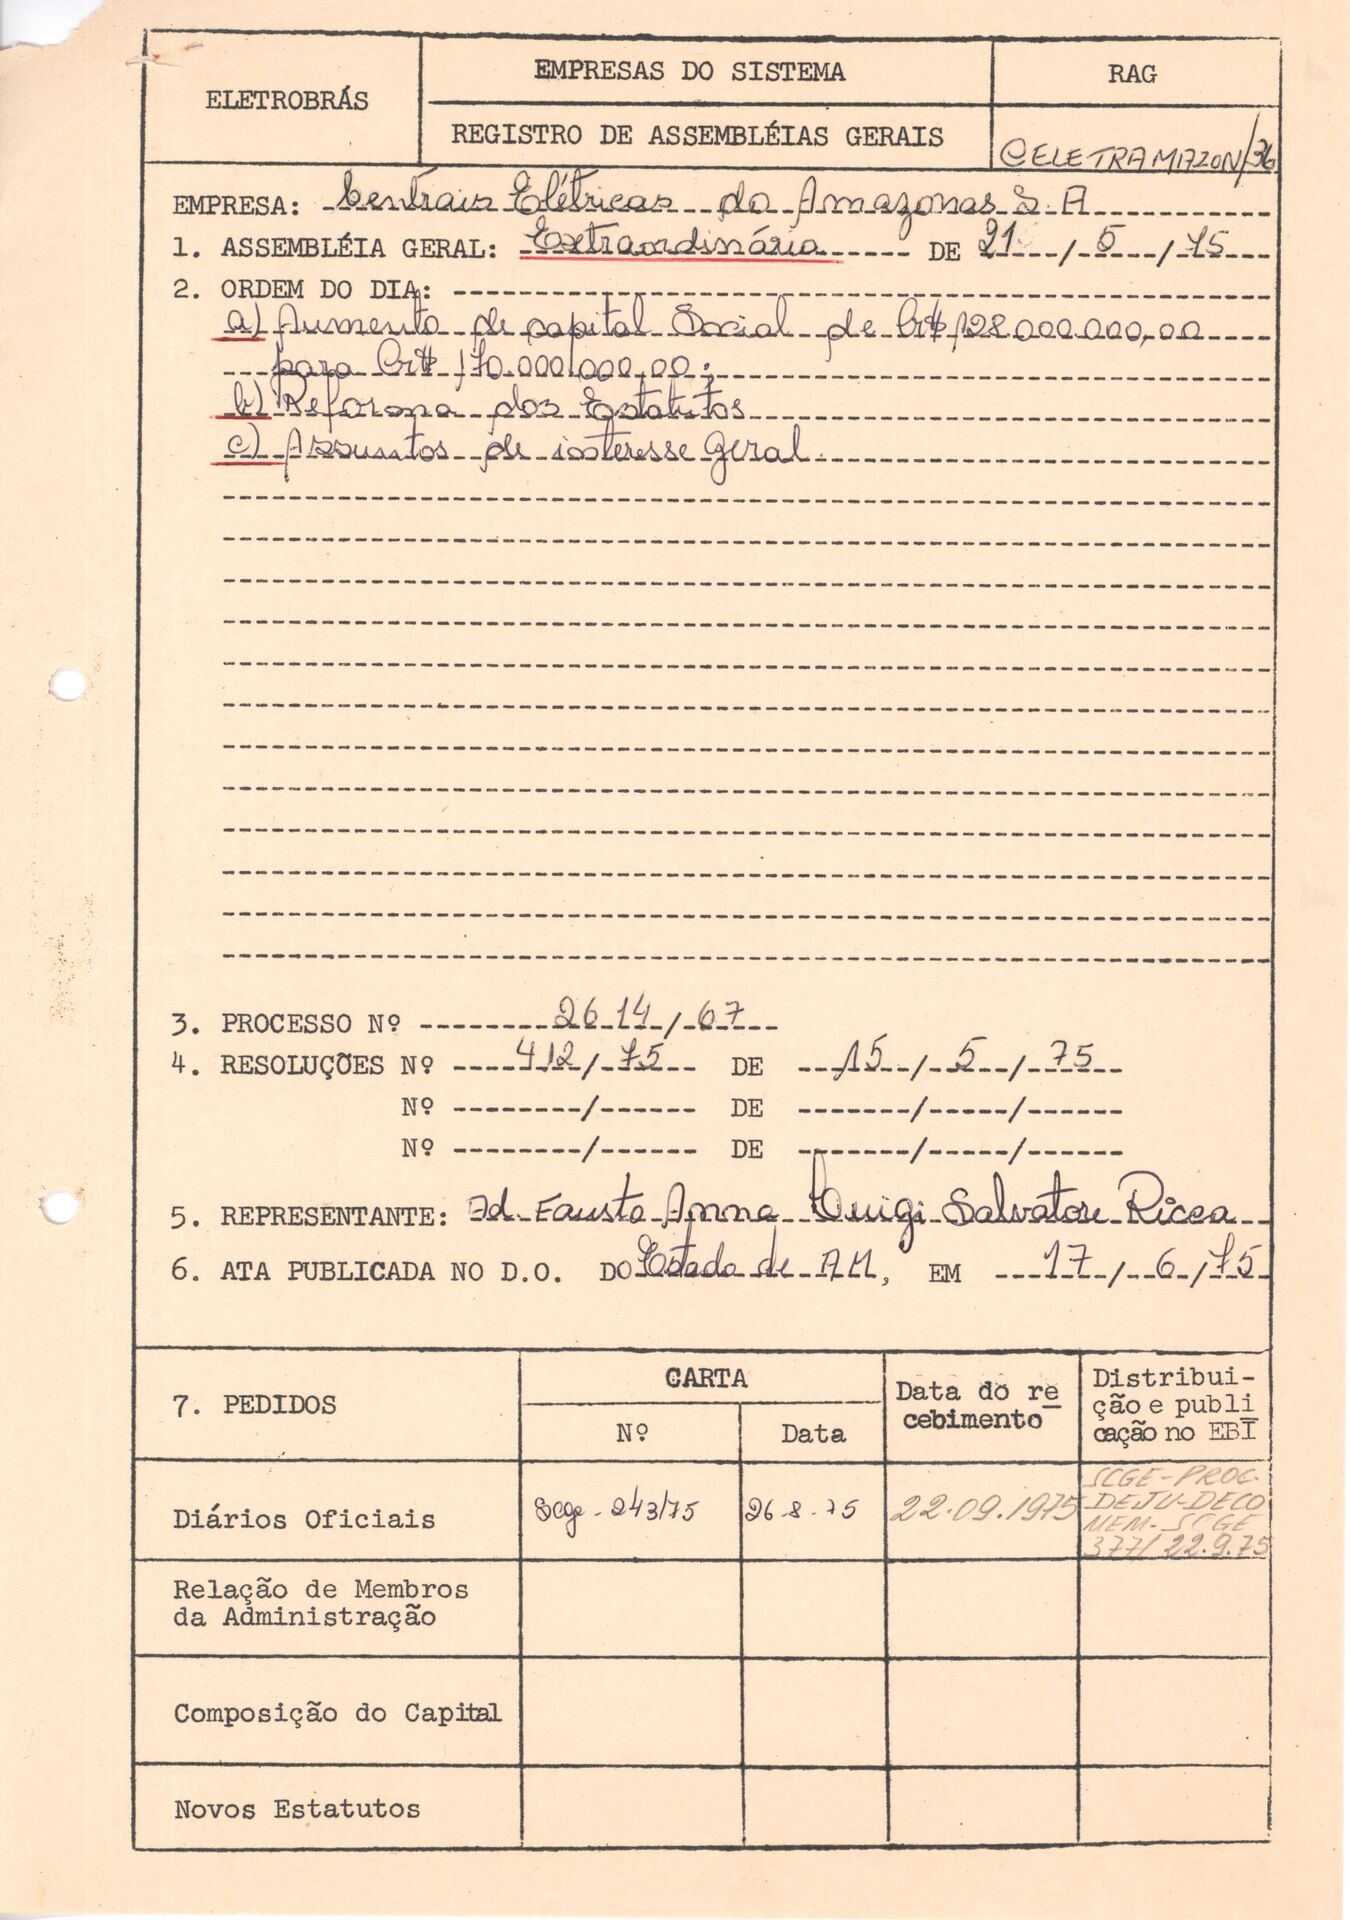 ELETROBRÁS
EMPRESAS DO SISTEMA
RAG
REGISTRO DE ASSEMBLÉIAS GERAIS
CELETRAMAZON/36
EMPRESA: Centrais Elétricas do Amazonas S.A
1. ASSEMBLÉIA GERAL: Extraordinária DE 21/5/75
2. ORDEM DO DIA:
a) Aumento de capital Social de Cr$ 128.000.000,00
para Cr$ 170.000.000,00;
b) Reforma dos Estatutos
c) Assuntos de interesse geral.
3. PROCESSO Nº 2614/67
4. RESOLUÇÕES Nº 412/75 DE 15/5/75
Nº / DE / /
Nº / DE / /
5. REPRESENTANTE: Fausto Anna Luigi Salvatore Ricca
6. ATA PUBLICADA NO D.O. DO Estado de AM, EM 17/6/75
7. PEDIDOS
CARTA
Nº
Data
Data do re
cebimento
Distribui-
ção e publi
cação no EBI
Diários Oficiais
Scge - 243/75
26-8-75
22.09.1975
SCGE-PROC-
DEJU-DECO
MEM-SCGE
377/22.9.75
Relação de Membros
da Administração
Composição do Capital
Novos Estatutos